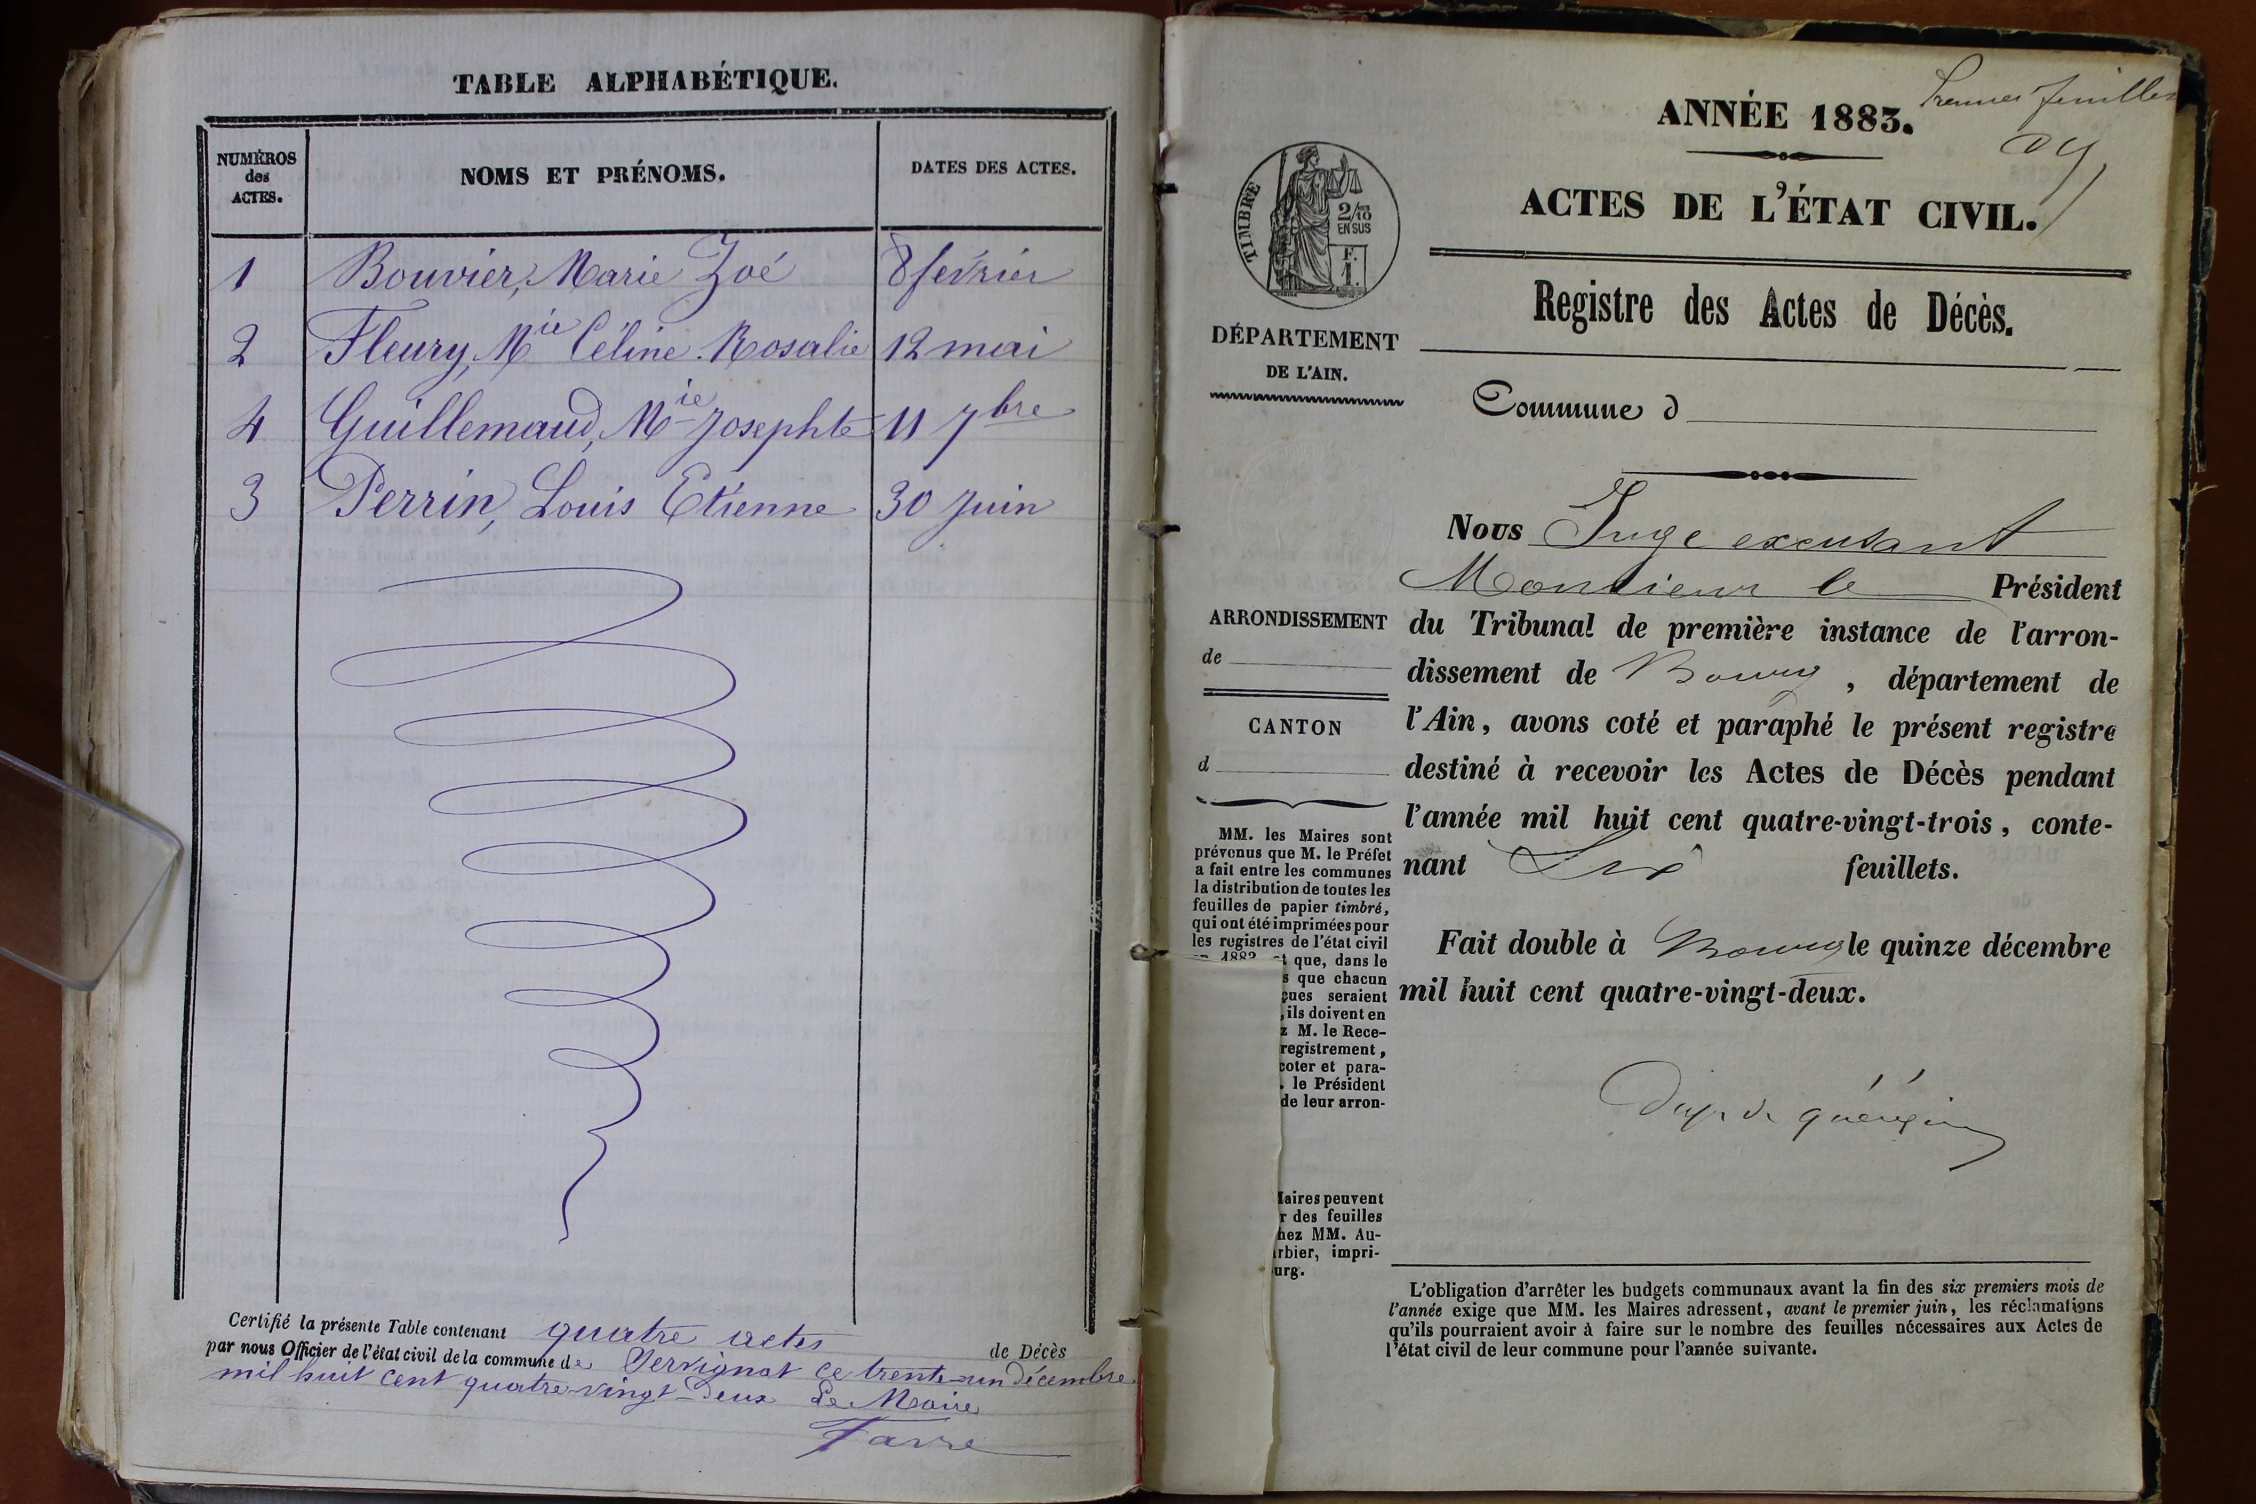 TABLE ALPHABÉTIQUE.
NUMÉROS
des
ACTES.
NOMS ET PRÉNOMS.
DATES DES ACTES.
1 Bouvier, Marie Zoé 8 février
2 Fleury, Mie Céline Rosalie 12 mai
4 Guillemaud, Mie Josephte 11 7bre
3 Perrin, Louis Etienne 30 juin
Certifié la présente Table contenant quatre actes de Décès
par nous Officier de l'état civil de la commune de Servignat ce trente-un décembre
mil huit cent quatre-vingt-deux Le Maire
Favre
Premier feuillet
ANNÉE 1883.
ACTES DE L'ÉTAT CIVIL.
Registre des Actes de Décès.
Commune d
Nous Juge excusant
Monsieur le Président
du Tribunal de première instance de l'arron-
dissement de Bourg, département de
l'Ain, avons coté et paraphé le présent registre
destiné à recevoir les Actes de Décès pendant
l'année mil huit cent quatre-vingt-trois, conte-
nant Six feuillets.
Fait double à Bourg le quinze décembre
mil huit cent quatre-vingt-deux.
TIMBRE
2/10
EN SUS
F.
1.
DÉPARTEMENT
DE L'AIN.
ARRONDISSEMENT
de
CANTON
d
MM. les Maires sont
prévenus que M. le Préfet
a fait entre les communes
la distribution de toutes les
feuilles de papier timbré,
qui ont été imprimées pour
les registres de l'état civil
1883 et que, dans le
s que chacun
ques seraient
, ils doivent en
z M. le Rece-
registrement,
coter et para-
. le Président
de leur arron-
Maires peuvent
r des feuilles
hez MM. Au-
rbier, impri-
urg.
L'obligation d'arrêter les budgets communaux avant la fin des six premiers mois de
l'année exige que MM. les Maires adressent, avant le premier juin, les réclamations
qu'ils pourraient avoir à faire sur le nombre des feuilles nécessaires aux Actes de
l'état civil de leur commune pour l'année suivante.